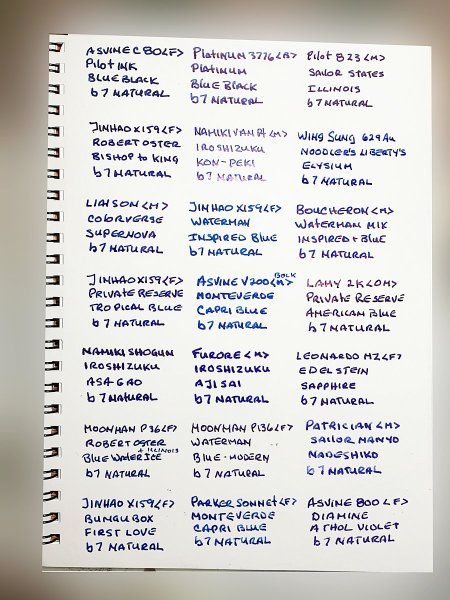 ASVINE C80<F>
Pilot INK
BLUE BLACK
b7 NATURAL
Platinum 3776<B>
PLATINUM
Blue Black
b7 NATURAL
Pilot 823<M>
SAILOR STATES
ILLINOIS
b7 NATURAL
JINHAO X159<F>
ROBERT OSTER
BISHOP to KING
b7 NATURAL
NAMIKI VAN PT<M>
IROSHIZUKU
KON-PEKI
b7 NATURAL
WING SUNG 629 Au
NOODLER'S LIBERTY'S
ELYSIUM
b7 NATURAL
LIAISON<M>
COLORVERSE
SUPERNOVA
b7 NATURAL
JINHAO X159<F>
WATERMAN
INSPIRED BLUE
b7 NATURAL
BOUCHERON<M>
WATERMAN MIX
INSPIRED + BLUE
b7 NATURAL
JINHAO X159<F>
PRIVATE RESERVE
TROPICAL BLUE
b7 NATURAL
BOCK
ASVINE V200<M>
MONTEVERDE
CAPRI BLUE
b7 NATURAL
LAMY 2K<OM>
PRIVATE RESERVE
AMERICAN BLUE
b7 NATURAL
NAMIKI SHOGUN
IROSHIZUKU
ASA-GAO
b7 NATURAL
FURORE<M>
IROSHIZUKU
AJISAI
b7 NATURAL
LEONARDO MZ<F>
EDELSTEIN
SAPPHIRE
b7 NATURAL
MOONMAN P136<F>
ROBERT OSTER
+ ILLINOIS
BLUE WATER ICE
b7 NATURAL
MOONMAN P136<F>
WATERMAN
BLUE-MODERN
b7 NATURAL
PATRICIAN<M>
SAILOR MANYO
NADESHIKO
b7 NATURAL
JINHAO X159<F>
BUNGUBOX
FIRST LOVE
b7 NATURAL
PARKER SONNET<F>
MONTEVERDE
CAPRI BLUE
b7 NATURAL
ASVINE 800<F>
DIAMINE
ATHOL VIOLET
b7 NATURAL